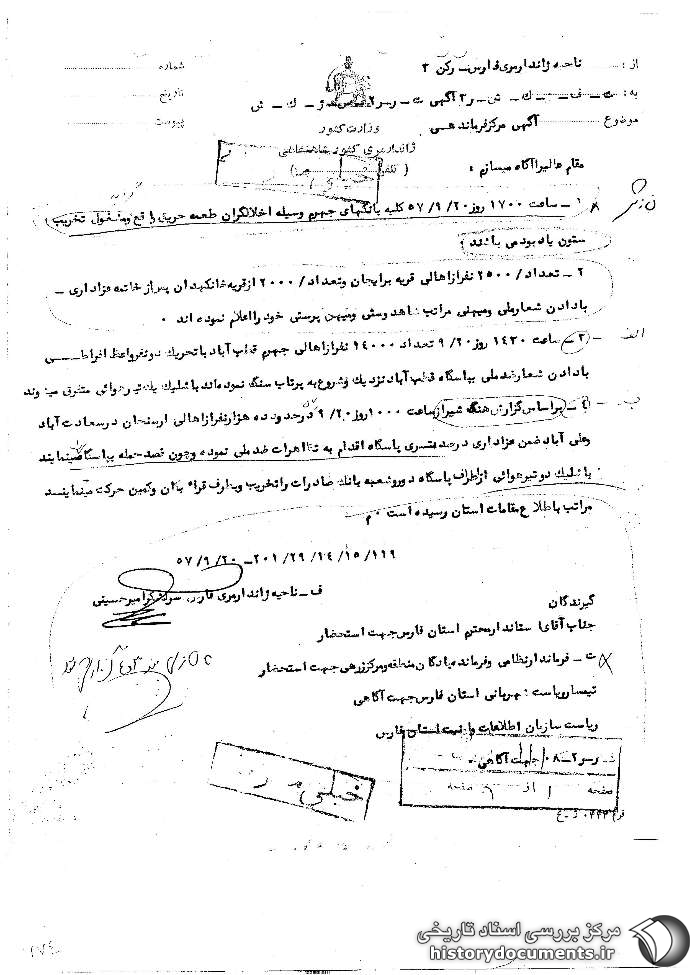 از : ناحیه ژاندارمری فارس ـ رکن ۲
شماره
به :
تاریخ
موضوع : آگهی مرکز فرماندهی
پیوست
وزارت کشور
ژاندارمری کشور شاهنشاهی
مقام عالی را آگاه میسازم :
۱ ـ ساعت ۱۷۰۰ روز ۵۷/۹/۲۰ کلیه بانکهای جهرم وسیله اخلالگران طعمه حریق واقع و مشغول تخریب
ستون یادبود می باشند
۲ ـ تعداد / ۲۵۰۰ نفر از اهالی قریه برایجان و تعداد / ۲۰۰۰ از قریه خانکهدان پس از خاتمه عزاداری ـ
با دادن شعار ملی و میهنی مراتب شاهدوستی و میهن پرستی خود را اعلام نموده اند ۰
الف
۳ ـ ساعت ۱۴۳۰ روز ۹/۲۰ تعداد ۱۴۰۰۰ نفر از اهالی جهرم قطب آباد با تحریک دو نفر واعظ افراطی
با دادن شعار ضد ملی بپاسگاه قطب آباد نزدیک و شروع به پرتاب سنگ نموده اند با شلیک یک تیر هوائی متفرق میشوند
ب
ـ براساس گزارش هنگ شیراز ساعت ۱۰۰۰ روز ۹/۲۰ در حدود ده هزار نفر از اهالی ارسنجان در سعادت آباد
وعلی آباد ضمن عزاداری در صد متری پاسگاه اقدام به تظاهرات ضد ملی نموده و چون قصد حمله بپاسگاه مینمایند
با شلیک دو تیر هوائی از طرف پاسگاه دور و شعبه بانک صادرات را تخریب و بطرف قراء بنان و کمین حرکت مینمایند
مراتب باطلاع مقامات استان رسیده است ۰ م
۲۰۱/۲۹/۱۴/۱۵/۱۱۹ ـ ۵۷/۹/۲۰
ف ـ ناحیه ژاندارمری فارس ـ میرحسینی
گیرندگان
جناب آقای استاندار محترم استان فارس جهت استحضار
ت ـ فرماندار نظامی و فرمانده پادگان منطقه و مرکز زرهی جهت استحضار
تیمسار ریاست شهربانی استان فارس جهت آگاهی
ریاست سازمان اطلاعات و امنیت استان فارس
جهت آگاهی
صفحه ۱ از ۱ صفحه
خیلی محرمانه
مرکز بررسی اسناد تاریخی
historydocuments.ir